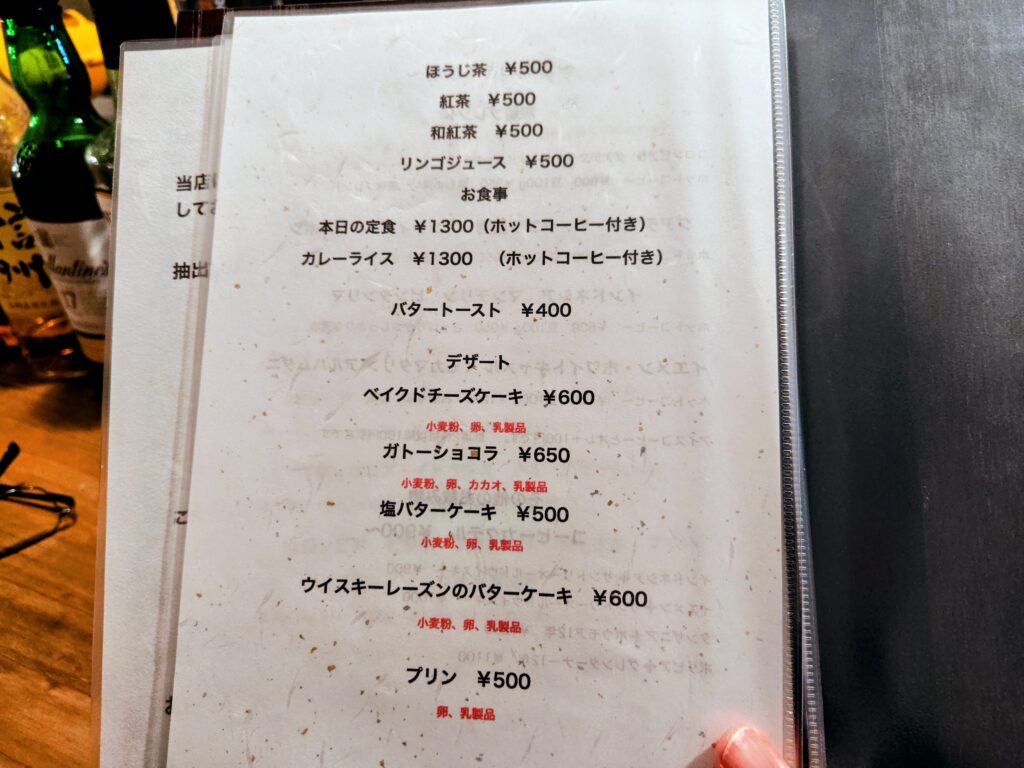 ほうじ茶　¥500
紅茶　¥500
和紅茶　¥500
リンゴジュース　¥500
お食事
本日の定食　¥1300（ホットコーヒー付き）
カレーライス　¥1300　（ホットコーヒー付き）
バタートースト　¥400
デザート
ベイクドチーズケーキ　¥600
小麦粉、卵、乳製品
ガトーショコラ　¥650
小麦粉、卵、カカオ、乳製品
塩バターケーキ　¥500
小麦粉、卵、乳製品
ウイスキーレーズンのバターケーキ　¥600
小麦粉、卵、乳製品
プリン　¥500
卵、乳製品
当店
して
抽出